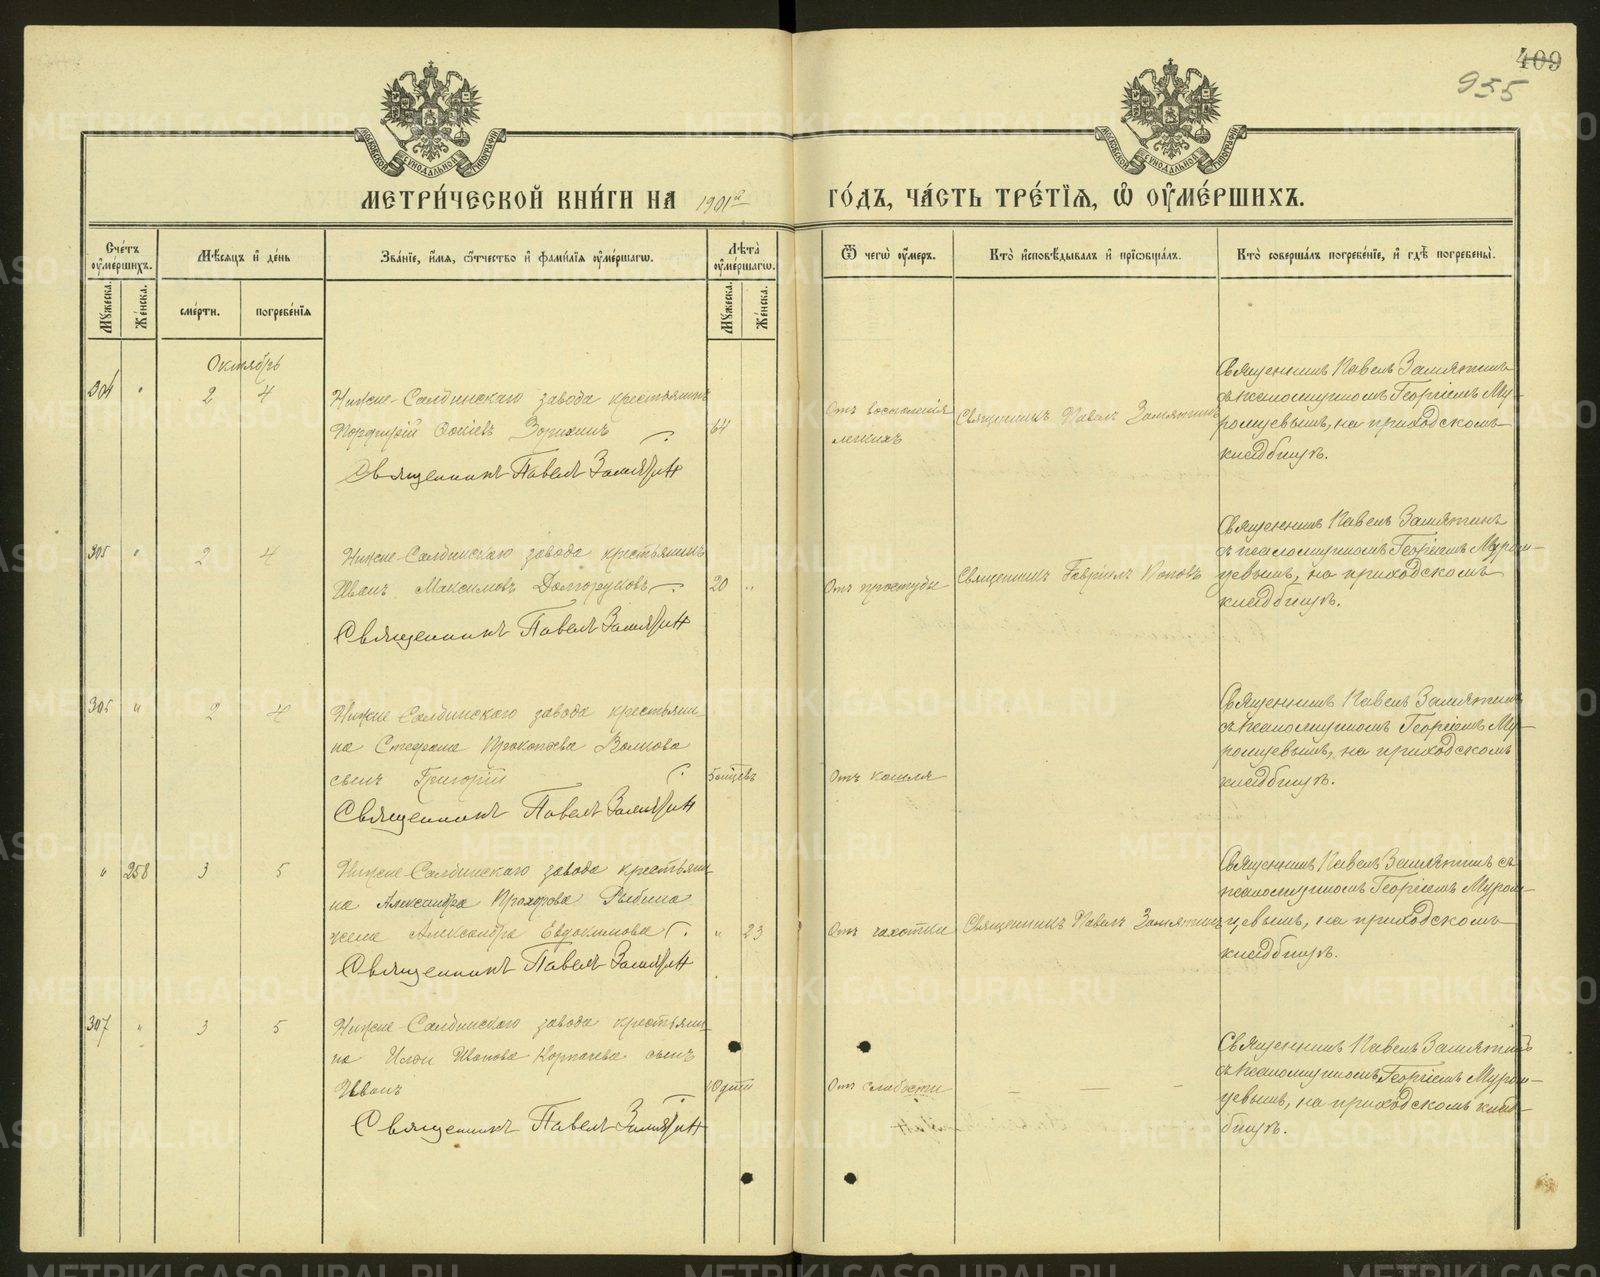 409
955
МЕТРИ́ЧЕСКОЙ КНИ́ГИ НА 1901й ГО́ДЪ, ЧА́СТЬ ТРЕ́ТЇЯ, Ѡ҆ ОУ҆МЕ́РШИХЪ.
Сче́тъ оу҆ме́ршихъ.
Мѣ́сяцъ и҆ де́нь
Зва́нїе, и҆́мя, ѻ҆́тчество и҆ фами́лїя оу҆ме́ршагѡ.
Лѣ́та оу҆ме́ршагѡ.
Ѿ чегѡ̀ оу҆́меръ.
Кто̀ и҆сповѣ́дывалъ и҆ прїѡбща́лъ.
Кто̀ соверша́лъ погребе́нїе, и҆ гдѣ̀ погребены̀.
Мꙋ́жеска.
Же́нска.
сме́рти.
погребе́нїя
Мꙋ́жеска.
Же́нска.
Октябрь
304 " 2 4
Нижне-Салдинскаго завода крестьянинъ
Порфирій
64
Священникъ Павелъ Замятин
Отъ воспаленія
легкихъ
Священникъ Павелъ Замятинъ
Священникъ Павелъ Замятинъ
съ псаломщикомъ Георгіемъ Му-
ромцевымъ, на приходскомъ
кладбищѣ.
305 " 2 4
Нижне-Салдинскаго завода крестьянинъ
Иванъ Максимовъ Долгоруковъ
20 "
Священникъ Павел Замятин
Отъ простуды
Священникъ Гавріилъ Поповъ
Священникъ Павелъ Замятинъ
съ псаломщикомъ Георгіемъ Муром-
цевымъ, на приходскомъ
кладбищѣ.
305 " 2 4
Нижне-Салдинскаго завода крестьяни-
на Стефана Прокопьева Волкова
сынъ Григорій
5 мѣсяцевъ
Священникъ Павелъ Замятин
Отъ кашля
Священникъ Павелъ Замятинъ
съ псаломщикомъ Георгіемъ Му-
ромцевымъ, на приходскомъ
кладбищѣ.
" 258 3 5
Нижне-Салдинскаго завода крестьяни-
на Александра Прохорова Рыбина
жена Александра Евдокимова
" 23
Священникъ Павелъ Замятин
Отъ чахотки
Священникъ Павелъ Замятинъ
Священникъ Павелъ Замятинъ съ
псаломщикомъ Георгіемъ Муром-
цевымъ, на приходскомъ
кладбищѣ.
307 " 3 5
Нижне-Салдинскаго завода крестьяни-
на Ильи Иванова Корпачева сынъ
Иванъ
10 дней
Священникъ Павелъ Замятин
Отъ слабости
Священникъ Павелъ Замятинъ
съ псаломщикомъ Георгіемъ Муром-
цевымъ, на приходскомъ клад-
бищѣ.
METRIKI.GASO-URAL.RU